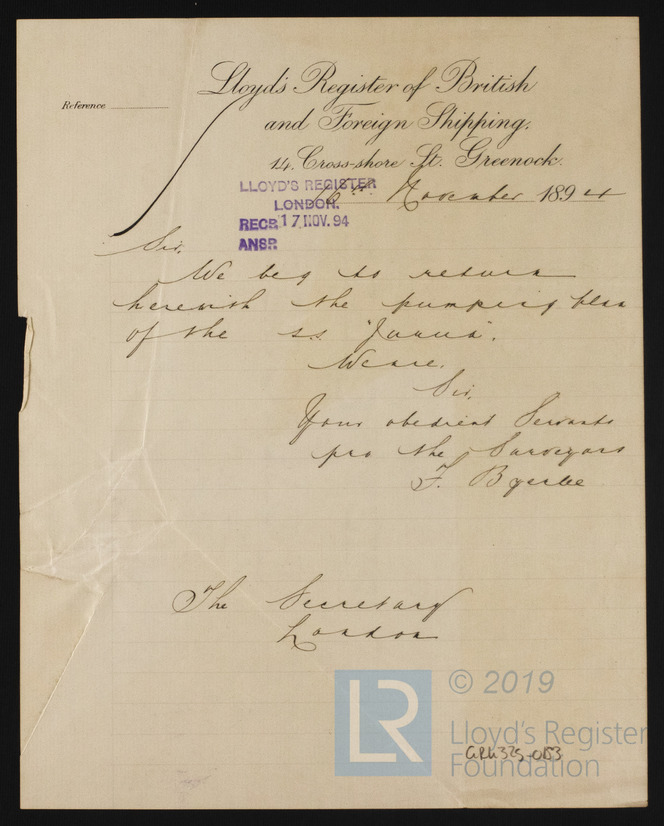 Lloyd's Register of British
Reference
and Foreign Shipping,
14, Cross-shore St. Greenock.
16th November 1894
LLOYD'S REGISTER
LONDON.
RECD 17 NOV. 94
ANSR
Sir,
We beg to return
herewith the pumping plan
of the s.s.
We are,
Sir,
Your obedient Servants
pro the Surveyors
F.
The Secretary
London
LR
© 2019
Lloyd's Register
Foundation